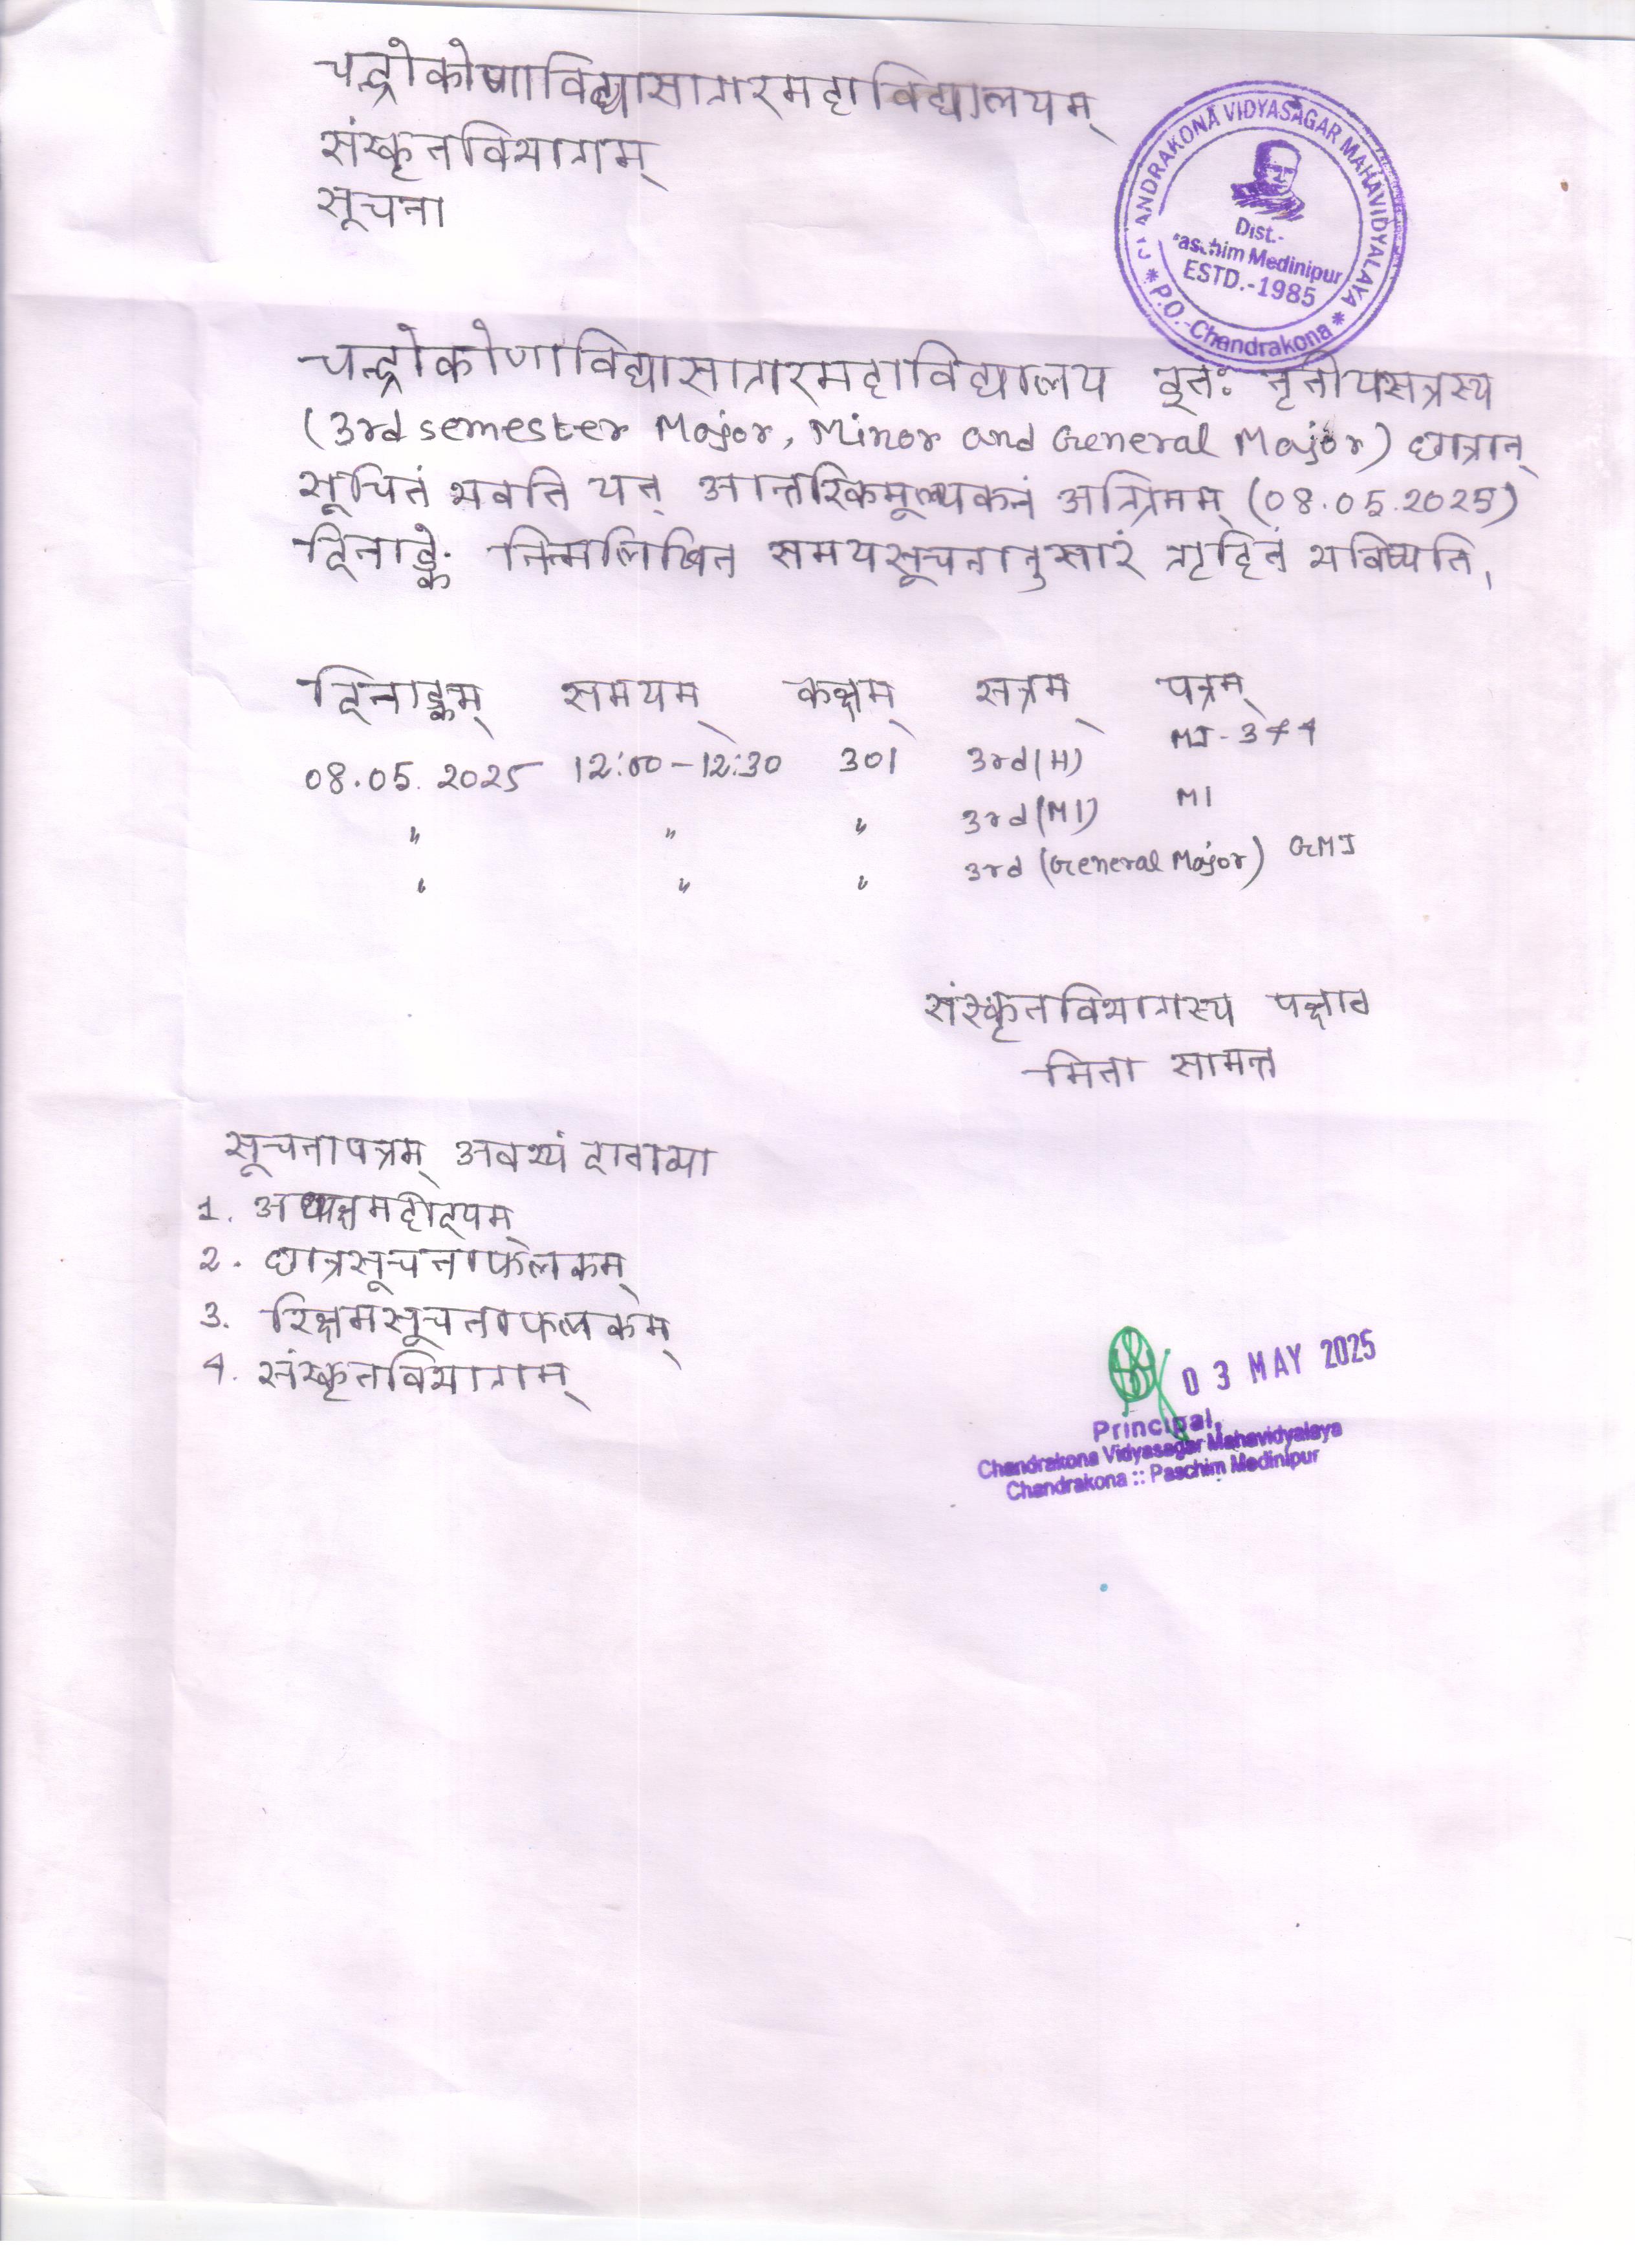 चन्द्रोकोणाविद्यासागरमहाविद्यालयम्
संस्कृतविभागम्
सूचना
CHANDRAKONA VIDYASAGAR MAHAVIDYALAYA
Dist.-
Paschim Medinipur
ESTD.-1985
* P.O.-Chandrakona *
चन्द्रोकोणाविद्यासागरमहाविद्यालय इतः तृतीयसत्रस्य
(3rd semester Major, Minor and General Major) छात्रान्
सूचितं भवति यत् आन्तरिकमूल्यकनं अग्रिमम् (08.05.2025)
दिनाङ्के निम्नलिखित समयसूचनानुसारं गृहितं भविष्यति।
दिनाङ्कम् समयम् कक्षम् सत्रम् पत्रम्
08.05.2025 12:00-12:30 301 3rd (H) MJ-3 & 4
" " " 3rd (MI) MI
" " " 3rd (General Major) GMJ
संस्कृतविभागस्य पक्षात
मिता सामन्त
सूचनापत्रम् अवश्यं दातव्या
1. अध्यक्षमहोदयम्
2. छात्रसूचनाफलकम्
3. सूचनाफलकम्
4. संस्कृतविभागम्
03 MAY 2025
Principal,
Chandrakona Vidyasagar Mahavidyalaya
Chandrakona :: Paschim Medinipur